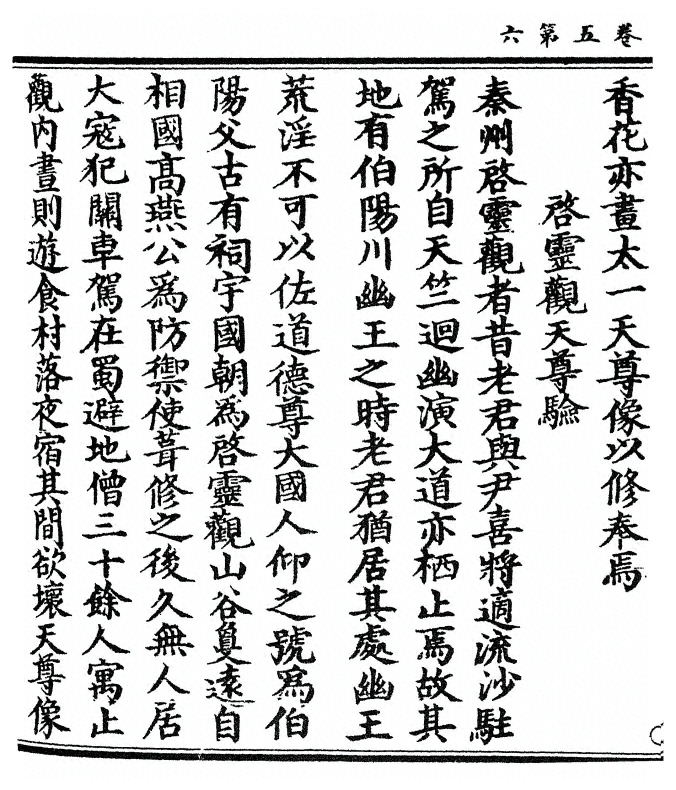 卷五第六
香花亦畫太一天尊像以修奉焉
啓靈觀天尊驗
秦州啓靈觀者昔老君與尹喜將適流沙駐
駕之所自天竺迴幽演大道亦栖止焉故其
地有伯陽川幽王之時老君猶居其處幽王
荒淫不可以佐道德尊大國人仰之號爲伯
陽父古有祠宇國朝爲啓靈觀山谷敻遠自
相國高燕公爲防禦使葺修之後久無人居
大寇犯關車駕在蜀避地僧三十餘人寓止
觀內晝則遊食村落夜宿其間欲壞天尊像